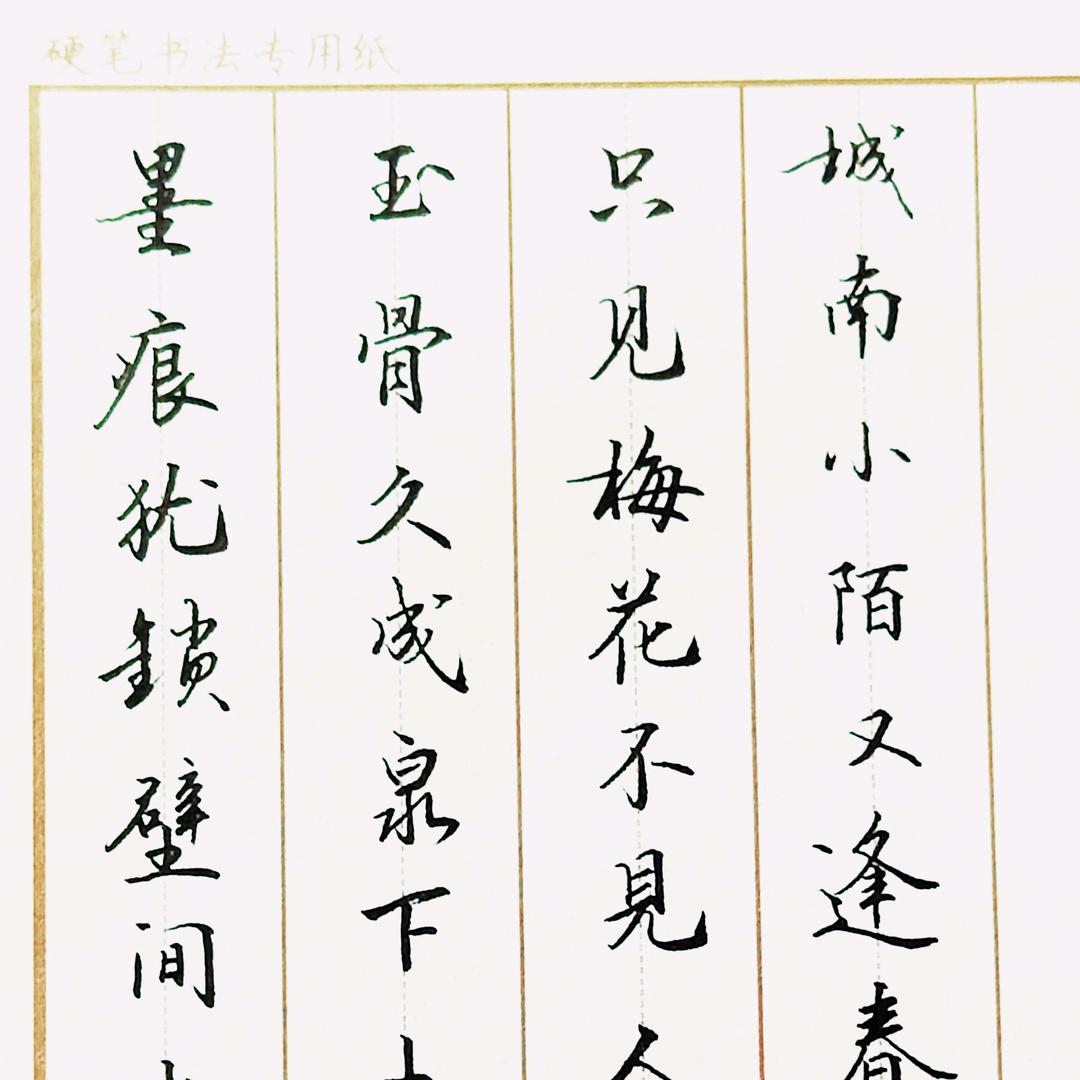 硬笔书法专用纸
城南小陌又逢春
只见梅花不見人
玉骨久成泉下土
墨痕犹鎖壁间